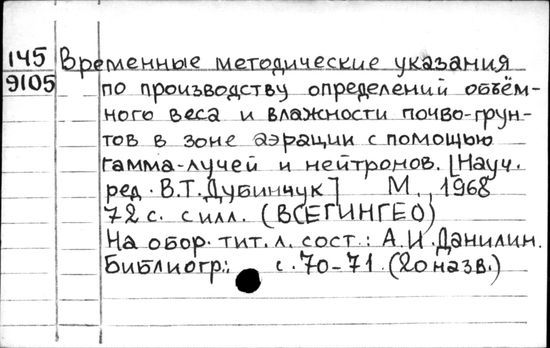 145 Временные методические указания
9105 по производству определений объём-
ного веса и влажности почво-грун-
тов в зоне аэрации с помощью
гамма-лучей и нейтронов. [Науч.
ред. В.Т.Дубинчук] М., 1968
72 с. с илл. (ВСЕГИНГЕО)
На обор. тит. л. сост.: А.И.Данилин.
Библиогр.: с. 70-71. (20 назв.)